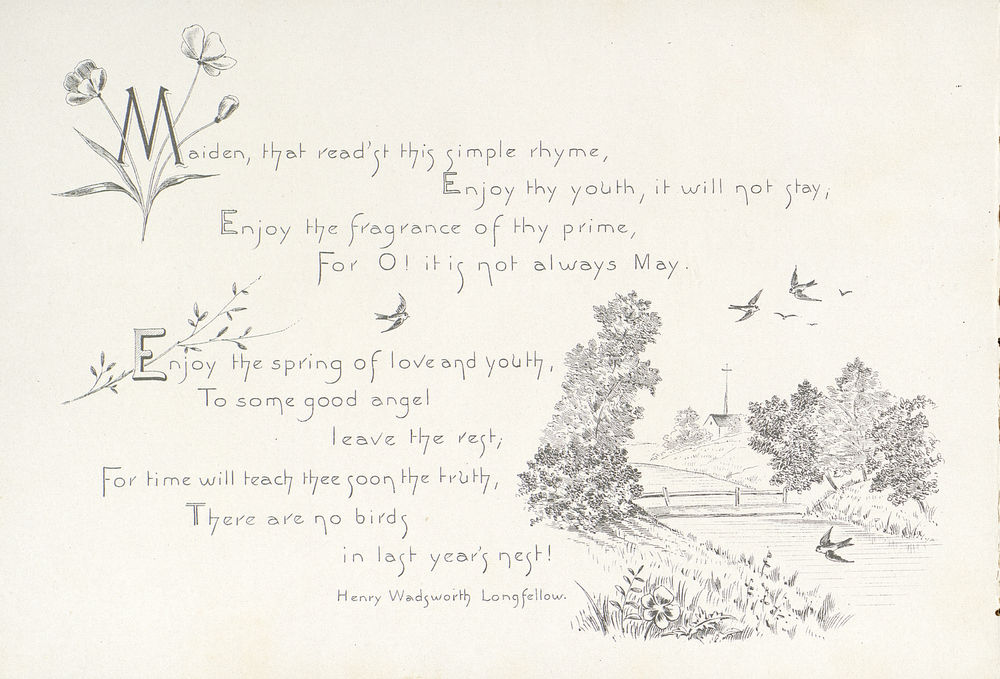 Maiden, that read'st this simple rhyme,
Enjoy thy youth, it will not stay;
Enjoy the fragrance of thy prime,
For O! it is not always May.
Enjoy the spring of love and youth,
To some good angel
leave the rest;
For time will teach thee soon the truth,
There are no birds
in last year's nest!
Henry Wadsworth Longfellow.